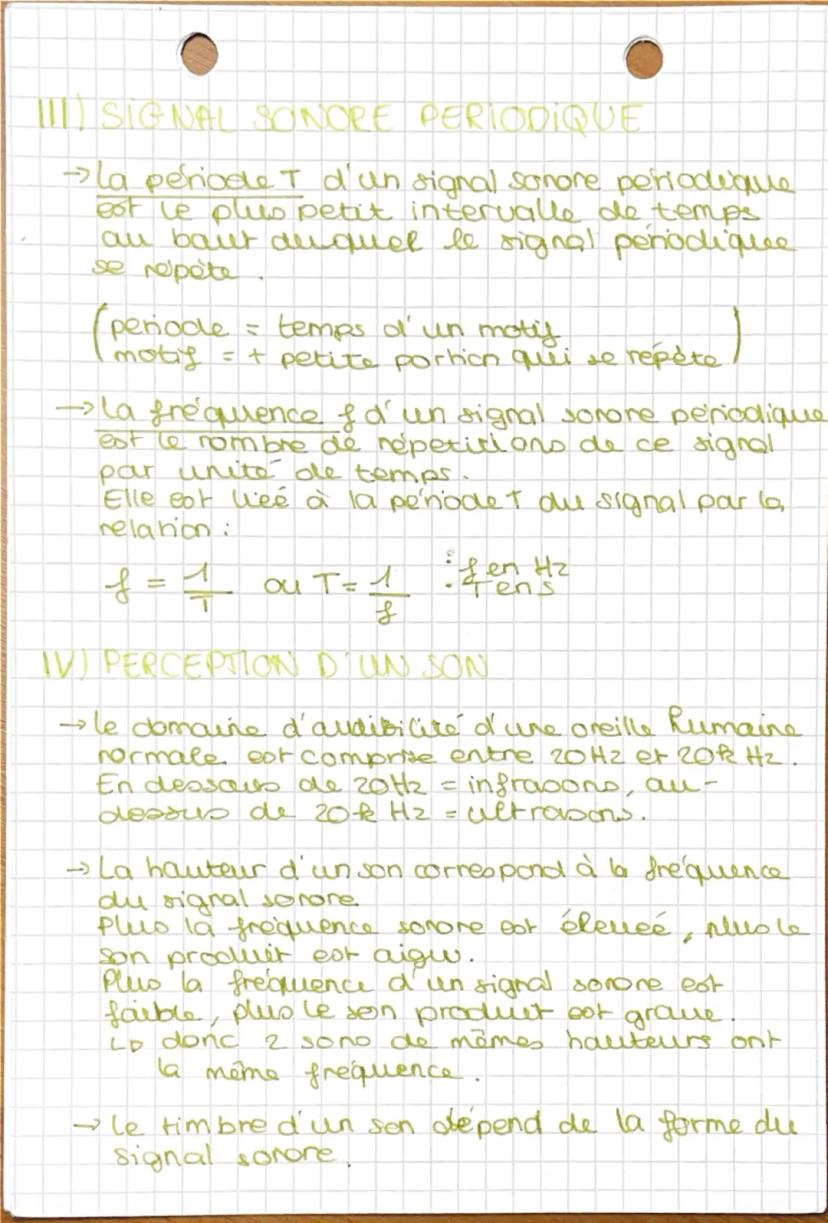 III) SIGNAL SONORE PERIODIQUE
→ La période T d'un signal sonore périodique
est le plus petit intervalle de temps
au bout duquel le signal périodique
se répète.
(periode = temps d'un motif
motif = + petite portion qui se répète)
→ La fréquence f d'un signal sonore périodique
est le nombre de répetitions de ce signal
par unité de temps.
Elle est liée à la période T du signal par la
relation :
f = 1/T ou T = 1/f : f en Hz
T en s
IV) PERCEPTION D'UN SON
→ le domaine d'audibilité d'une oreille humaine
normale est comprise entre 20 Hz et 20k Hz.
En dessous de 20Hz = infrasons, au-
dessus de 20k Hz = ultrasons.
→ La hauteur d'un son correspond à la fréquence
du signal sonore.
Plus la fréquence sonore est élevée, plus le
son produit est aigu.
Plus la fréquence d'un signal sonore est
faible, plus le son produit est grave.
↳ donc 2 sons de mêmes hauteurs ont
la même fréquence.
→ Le timbre d'un son dépend de la forme du
signal sonore.